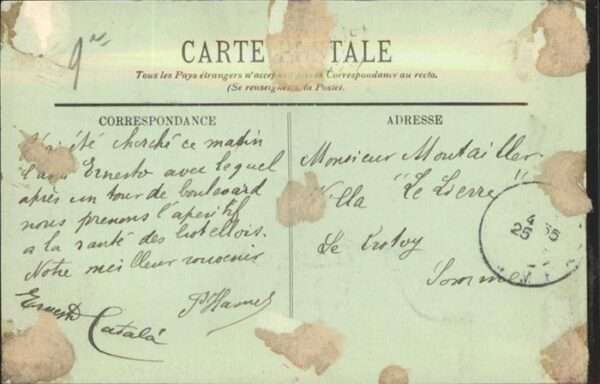 CARTE POSTALE
Tous les Pays étrangers n'acceptent pas la Correspondance au recto.
(Se renseigner à la Poste).
CORRESPONDANCE
été cherché ce matin
Ernesto avec lequel
après un tour de boulevard
nous prenons l'aperitif
a la santé des
Notre meilleur souvenir
Ernesto Catalá
ADRESSE
Monsieur Montailler
Villa "Le Lierre"
Le Crotoy
Somme
25 4